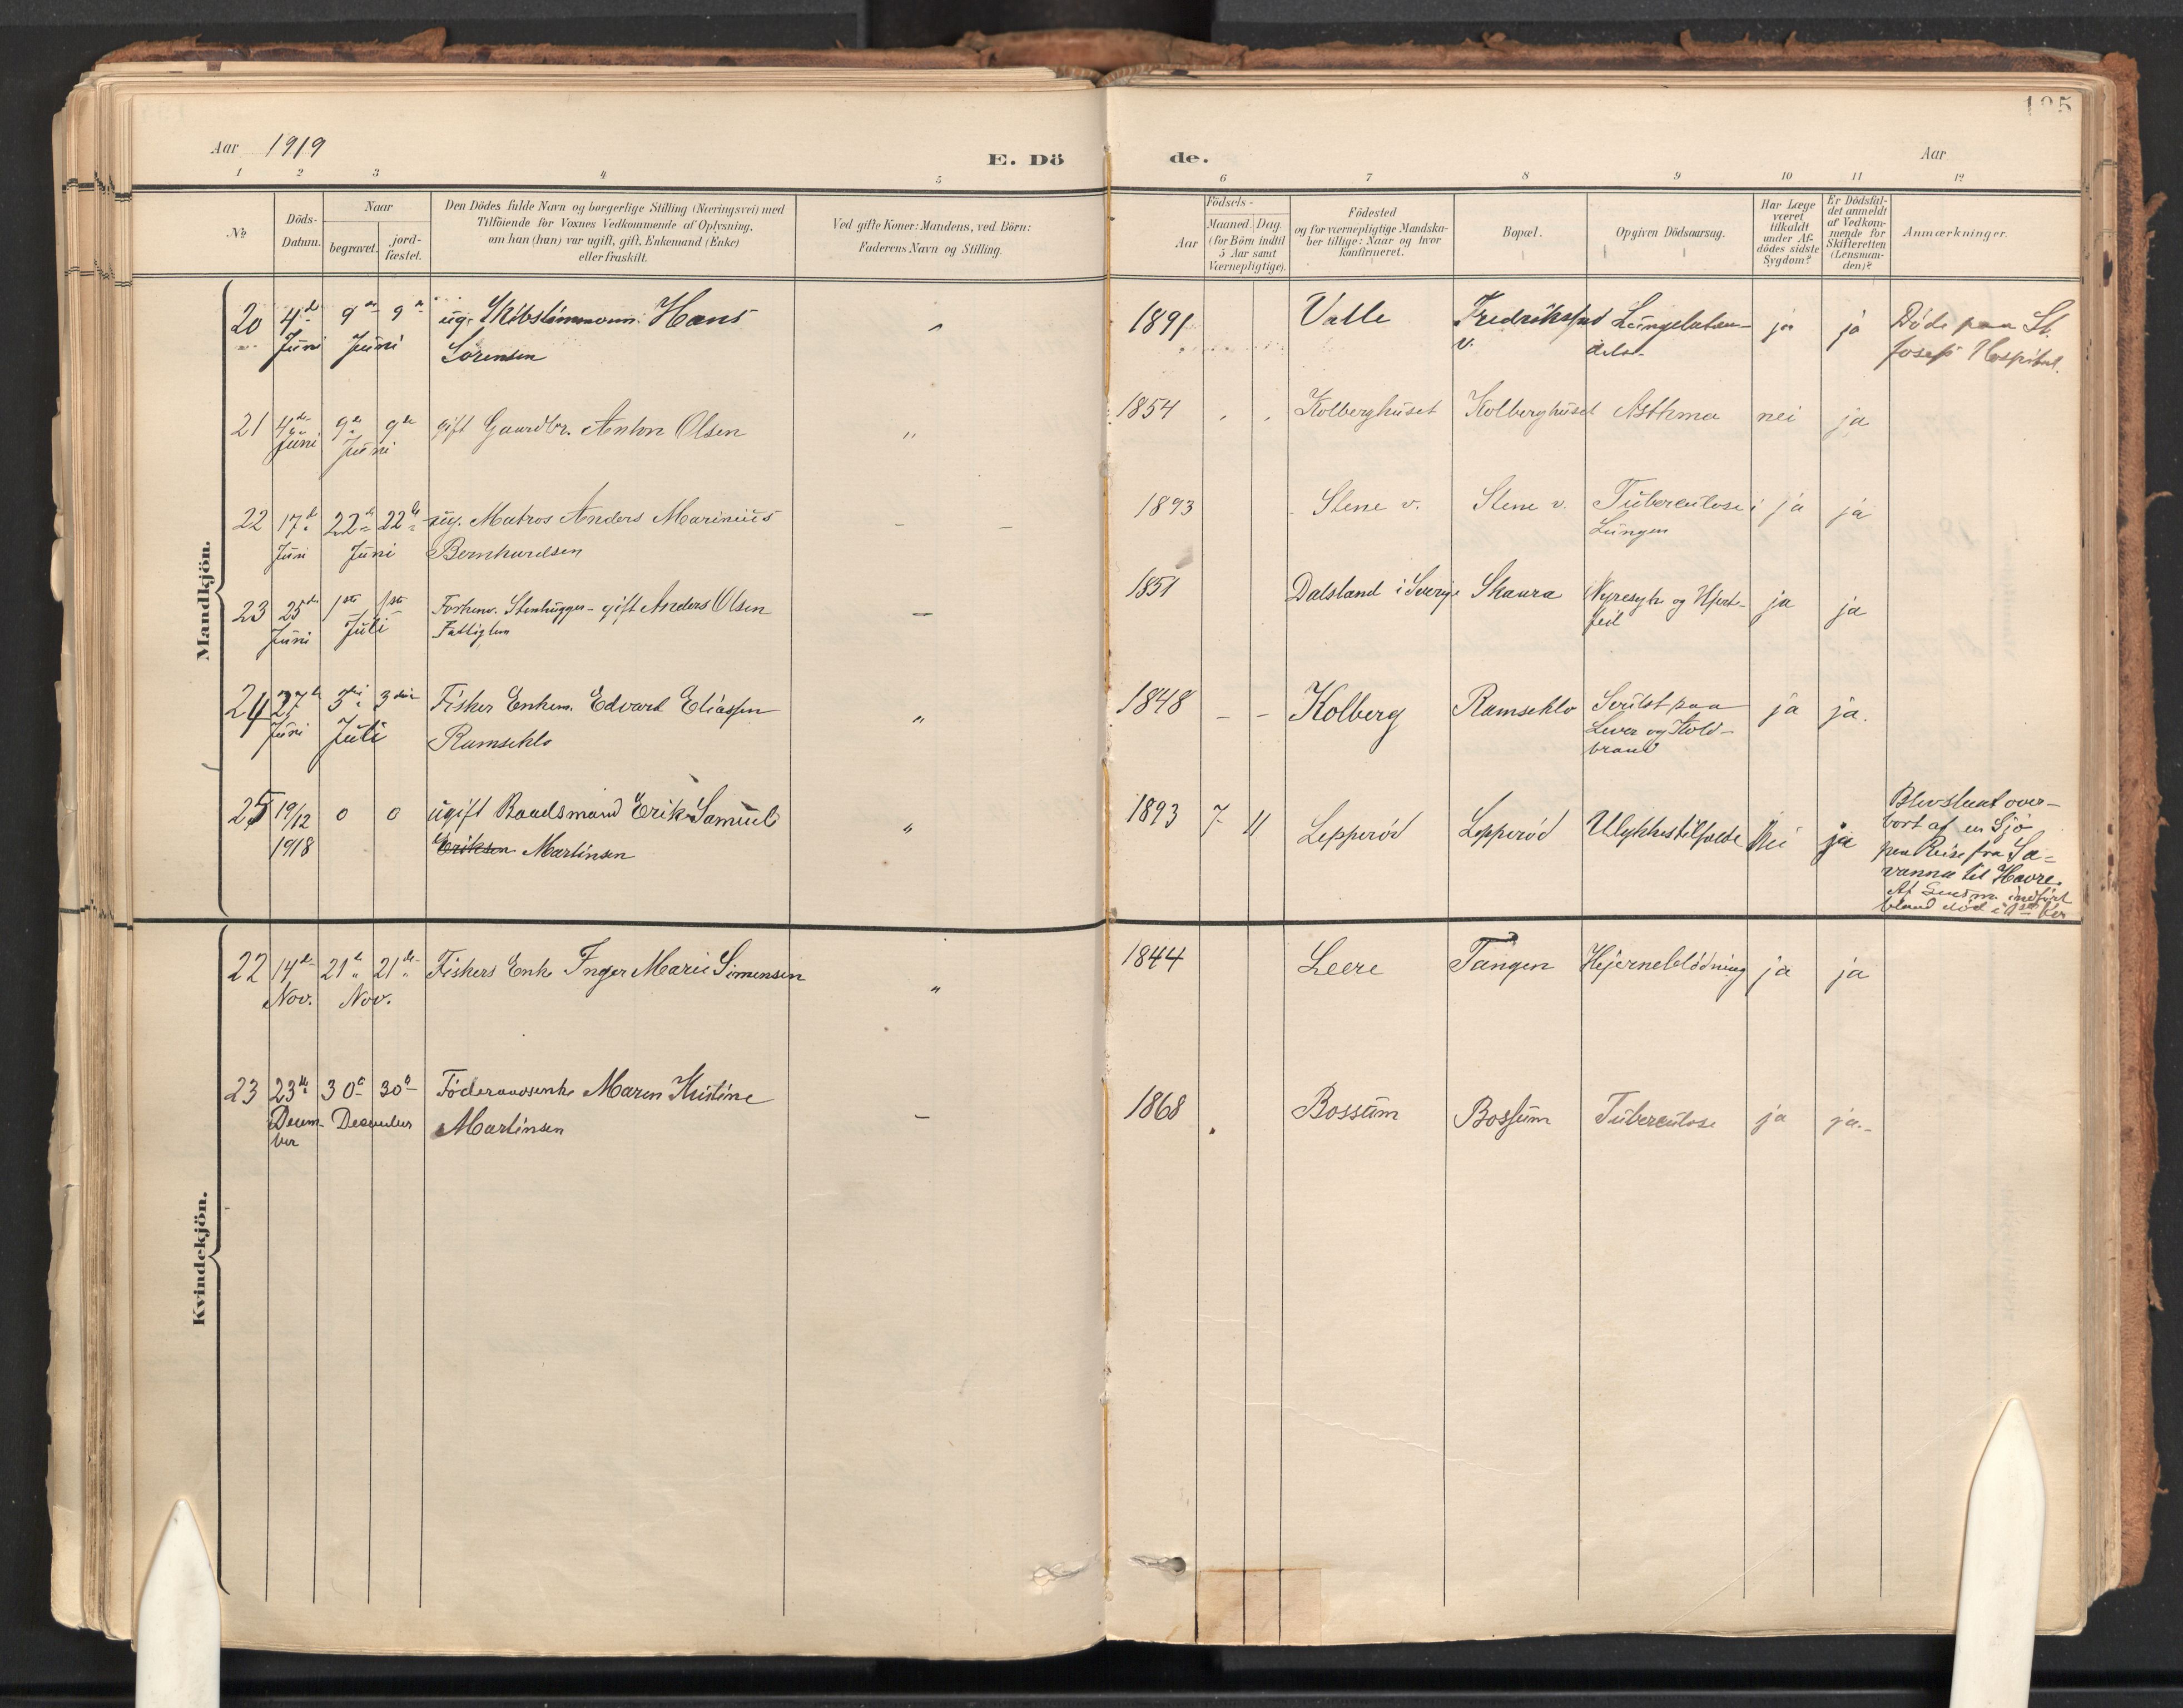 195
Aar 1919
E. Dö de.
Aar
1 2 3 4 5 6 7 8 9 10 11 12
No
Döds-Datum.
Naar
begravet.
jord-fæstet.
Den Dödes fulde Navn og borgerlige Stilling (Næringsvei) med
Tilföiende for Voxnes Vedkommende af Oplysning,
om han (hun) var ugift, gift, Enkemand (Enke)
eller fraskilt.
Ved gifte Koner: Mandens, ved Börn:
Faderens Navn og Stilling.
Födsels-
Aar
Maaned. Dag.
(for Börn indtil
5 Aar samt
Værnepligtige).
Födested
og for værnepligtige Mandska-
ber tillige: Naar og hvor
konfirmeret.
Bopæl.
Opgiven Dödsaarsag.
Har Læge
været
tilkaldt
under Af-
dödes sidste
Sygdom?
Er Dödsfal-
det anmeldt
af Vedkom-
mende for
Skifteretten
(Lensman-
den)?
Anmærkninger.
Mandkjön.
20 4de 9de 9de ug. Skibstimmerm. Hans 1891 Valle Fredrikstad Lungebetæn- ja ja Döde paa St.
Juni Juni Sörensen v. delse Josefs Hospital.
21 4de 9de 9de gift Gaardbr. Anton Olsen " 1854 Kolberghuset Kolberghuset Asthma nei ja
Juni Juni
22 17de 22de 22de ug. Matros Anders Marinius – – 1893 Stene v. Stene v. Tuberculose i ja ja
Juni Juni Bernhardsen Lungen
23 25de 1ste 1ste Forhenv. Stenhugger – gift Anders Olsen – 1851 Dalsland i Sverige Skaara Nyresyke og Hjerte- ja ja
Juni Juli Fattiglem feil
24 27de 3die 3die Fisker Enkem. Edvard Eliassen " 1848 – – Kolberg Ramseklo Svulst paa ja ja.
Juni Juli Ramseklo Lever og Kold-
brand
25 19/12 0 0 ugift Baadsmand Erik Samuel " 1893 7 11 Lepperöd Lepperöd Ulykkestilfælde Nei ja Blev slaat over-
1918 Eriksen Martinsen bort af en Sjö
paa Reise fra Sa-
vanna til Havre.
Af Lensm. indfört
bland död i 1ste
Kvindekjön.
22 14de 21de 21de Fiskers Enke Inger Marie Simensen " 1844 Leere Tangen Hjerneblödning ja ja
Nov. Nov.
23 23de 30te 30te Föderaadsenke Maren Kristine – 1868 Bossum Bossum Tuberculose ja ja.
Decem- December Martinsen
ber